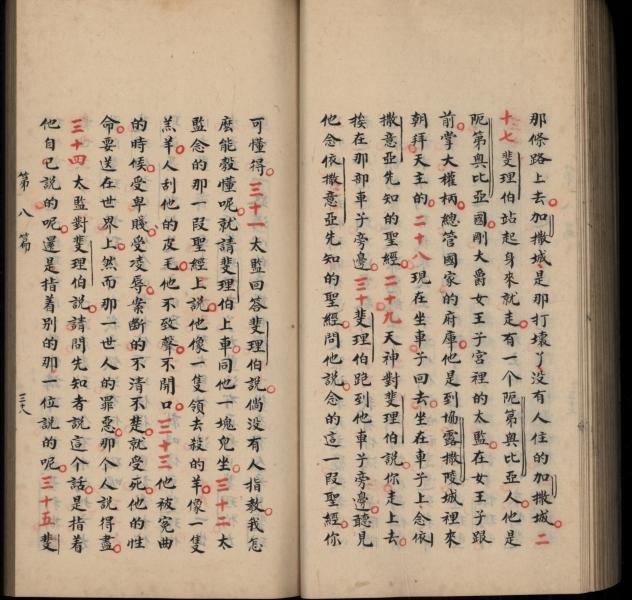 那條路上去加撒城是那打壞了沒有人住的加撒城二
十七斐理伯站起身來就走有一個阨第奧比亞人他是
阨第奧比亞國剛大爵女王子宮裡的太監在女王子跟
前掌大權柄總管國家的府庫他是到協露撒陵城裡來
朝拜天主的二十八現在坐車子回去坐在車子上念依
撒意亞先知的聖經二十九天神對斐理伯說你走上去
挨在那部車子旁邊三十斐理伯跑到他車子旁邊聽見
他念依撒意亞先知的聖經問他說念的這一段聖經你
可懂得三十一太監回答斐理伯說倘沒有人指教我怎
麼能彀懂呢就請斐理伯上車同他一塊兒坐三十二太
監念的那一段聖經上說他像一隻領去殺的羊像一隻
羔羊人刮他的皮毛他不致聲不開口三十三他被冤曲
的時候受卑賤受凌辱案斷的不清不楚就受死他的性
命要送在世界上然而那一世人的罪惡那個人說得盡
三十四太監對斐理伯說請問先知者說這个話是指着
他自己說的呢還是指着別的那一位說的呢三十五斐
第八篇
三八